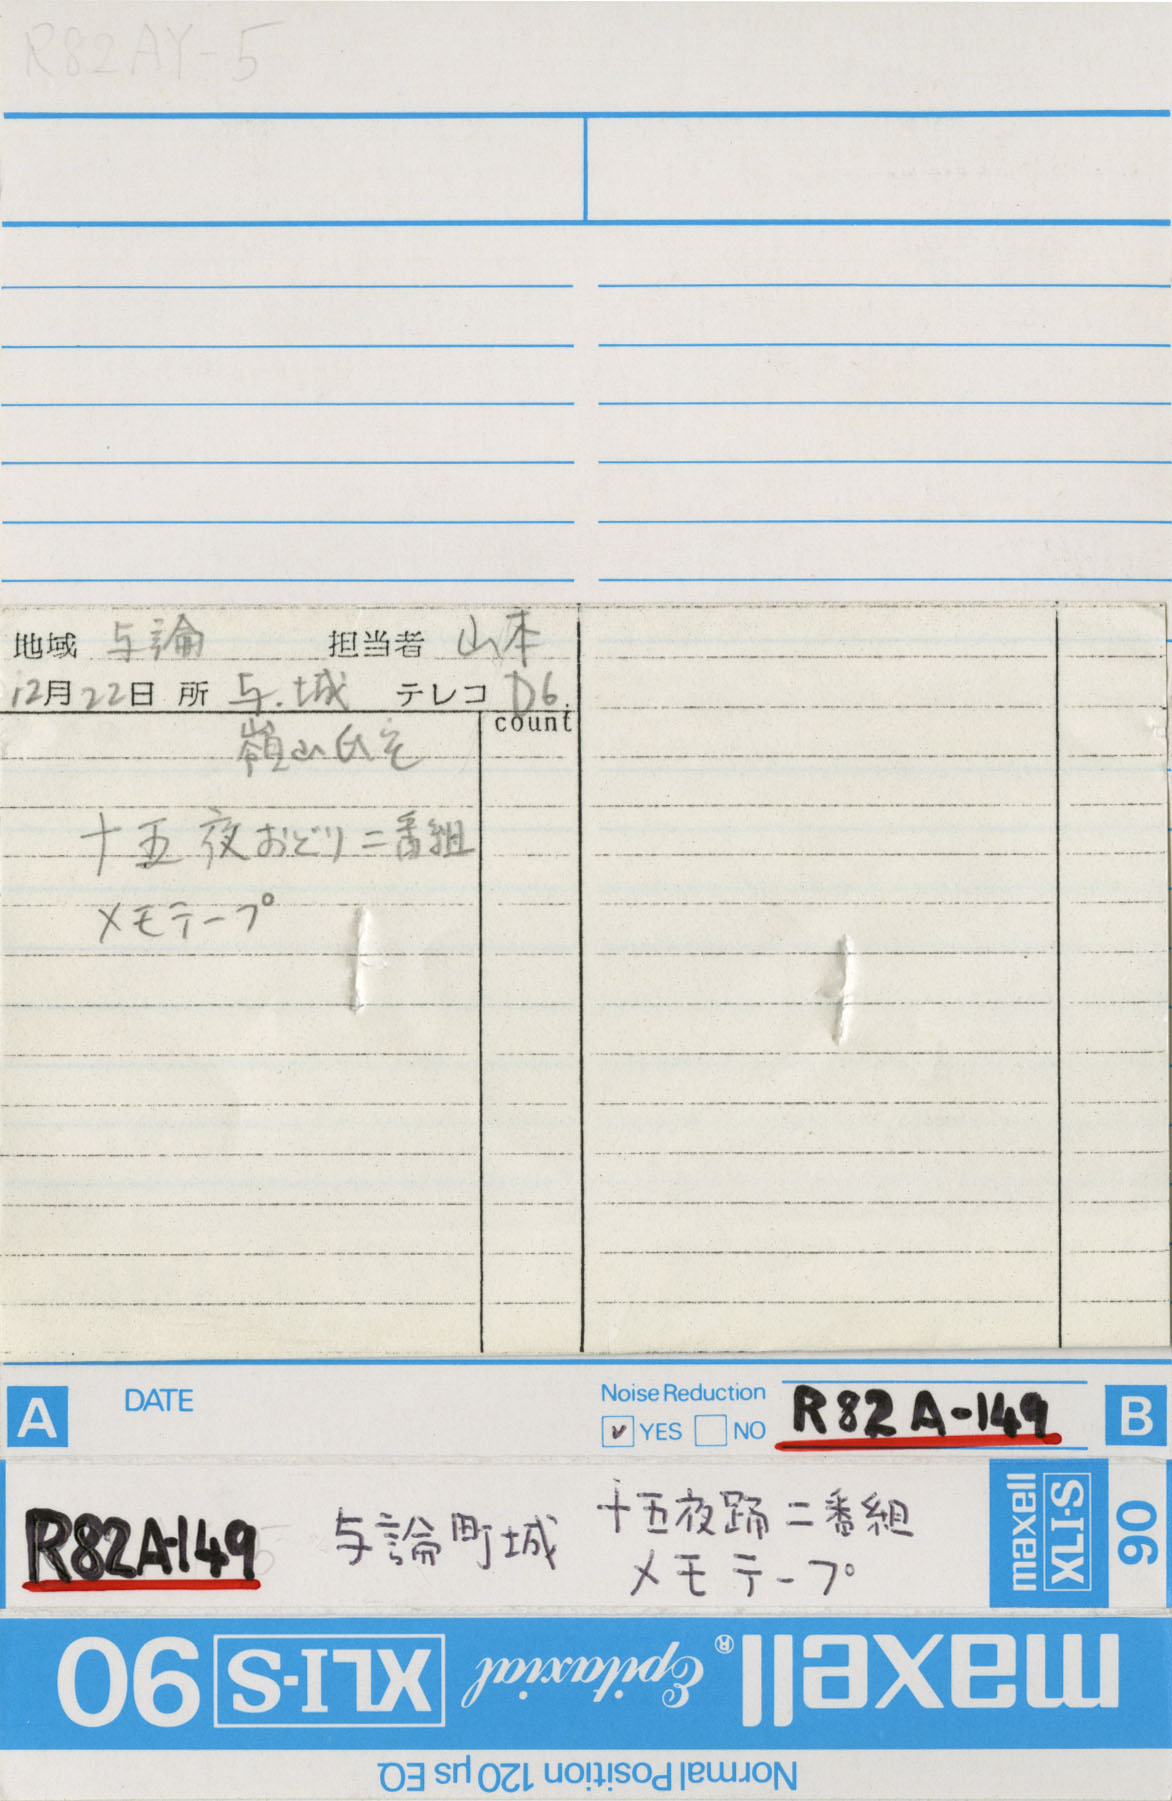 R82AY-5
地域 与論 担当者 山本
12月22日 所 与.城 テレコ D6.
count
嶺山氏宅
十五夜おどり二番組
メモテープ
A DATE Noise Reduction YES NO R82A-149 B
R82A-149 与論町城 十五夜踊二番組
メモテープ
maxell XLI-S 90
maxell® Epitaxial XLI-S 90
Normal Position 120 µs EQ